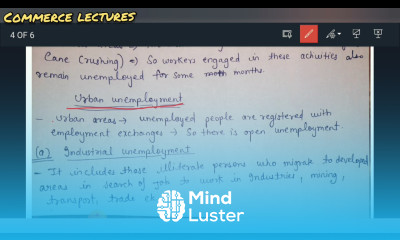 COMMERCE LECTURES
4 OF 6
Cane (crushing) => So workers engaged in these activities also
remain unemployed for some months.
Urban unemployment
- Urban areas → unemployed people are registered with
employment exchanges → So there is open unemployment.
(a) Industrial unemployment
- It includes those illiterate persons who migrate to developed
areas in search of job to work in Industries, mining,
transport, trade
Mind
Luster